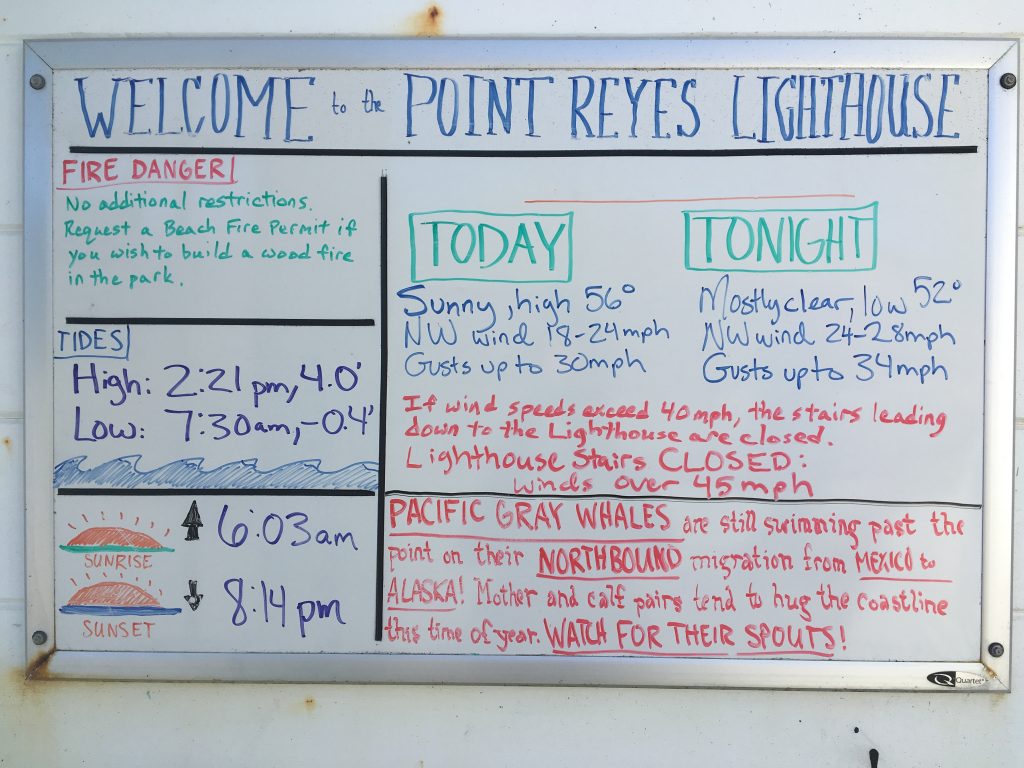 WELCOME to the POINT REYES LIGHTHOUSE
FIRE DANGER
No additional restrictions.
Request a Beach Fire Permit if
you wish to build a wood fire
in the park.
TIDES
High: 2:21 pm, 4.0'
Low: 7:30am, -0.4'
SUNRISE
6:03am
SUNSET
8:14 pm
TODAY
Sunny, high 56°
NW wind 18-24mph
Gusts up to 30mph
TONIGHT
Mostly clear, low 52°
NW wind 24-28mph
Gusts up to 34mph
If wind speeds exceed 40mph, the stairs leading
down to the Lighthouse are closed.
Lighthouse Stairs CLOSED:
winds over 45mph
PACIFIC GRAY WHALES are still swimming past the
point on their NORTHBOUND migration from MEXICO to
ALASKA! Mother and calf pairs tend to hug the coastline
this time of year. WATCH FOR THEIR SPOUTS!
Quartet